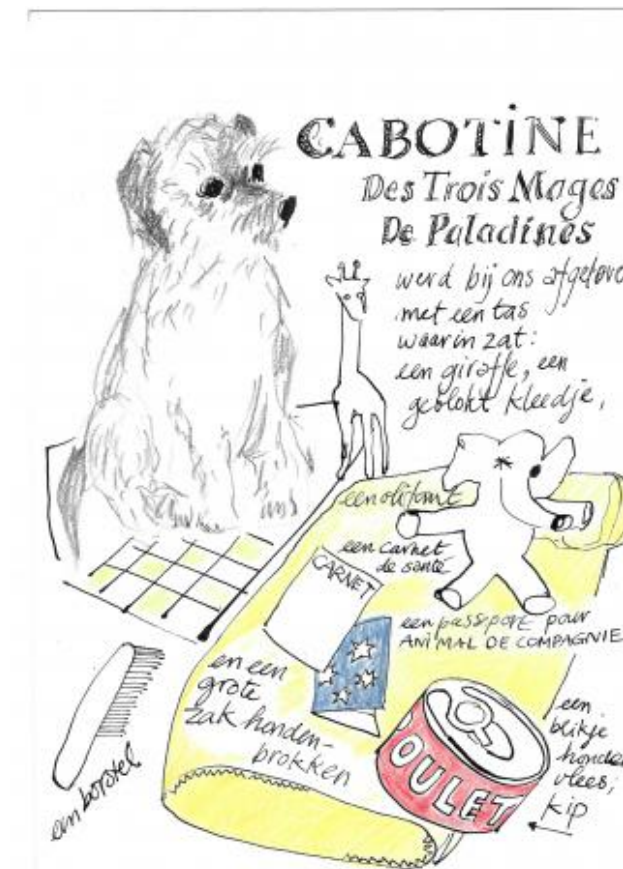 CABOTINE
Des Trois Mages
De Paladines
werd bij ons
met een tas
waarin zat:
een giraffe, een
geblokt kleedje,
een olifant
een carnet
de santé
CARNET
een passport pour
ANIMAL DE COMPAGNIE
en een
grote
zak honden-
brokken
een borstel
OULET
een
blikje
vlees;
kip